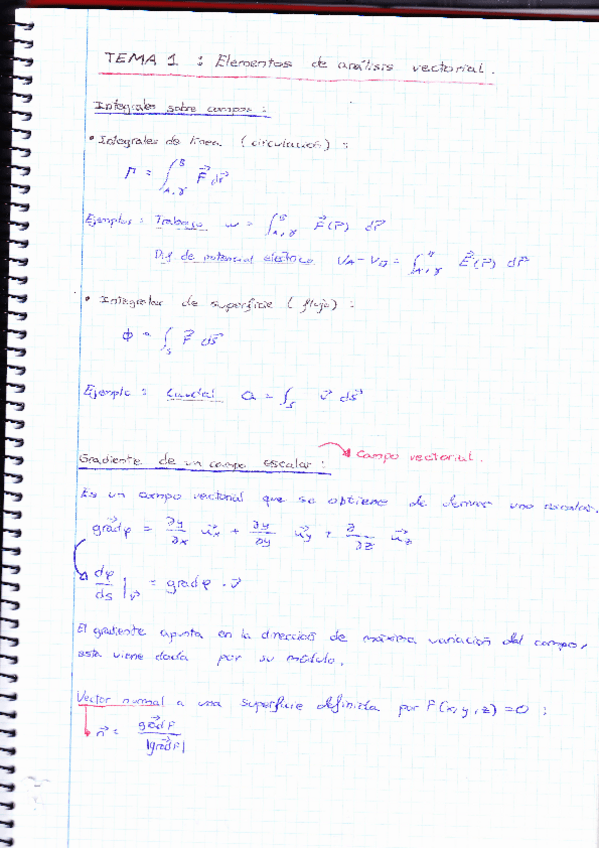 TEMA 1 : Elementos de análisis vectorial.
Integrales sobre campos :
• Integrales de línea (circulación) :
Γ = ∫_{A,γ}^{B} F⃗ ds⃗
Ejemplos : Trabajo W = ∫_{A,γ}^{B} F⃗(r⃗) dr⃗
Dif de potencial eléctrico V_A - V_B = ∫_{A,γ}^{B} E⃗(r⃗) dr⃗
• Integrales de superficie (flujo) :
Φ = ∫_S F⃗ ds⃗
Ejemplo : Caudal Q = ∫_S v⃗ ds⃗
Gradiente de un campo escalar : → campo vectorial.
Es un campo vectorial que se obtiene de derivar uno escalar.
grad⃗φ = ∂φ/∂x u⃗x + ∂φ/∂y u⃗y + ∂/∂z u⃗z
dφ/ds |_v⃗ = gradφ · v⃗
El gradiente apunta en la dirección de máxima variación del campo,
esta viene dada por su módulo.
Vector normal a una superficie definida por F(x,y,z) = 0 :
n⃗ = grad⃗F / |grad⃗F|